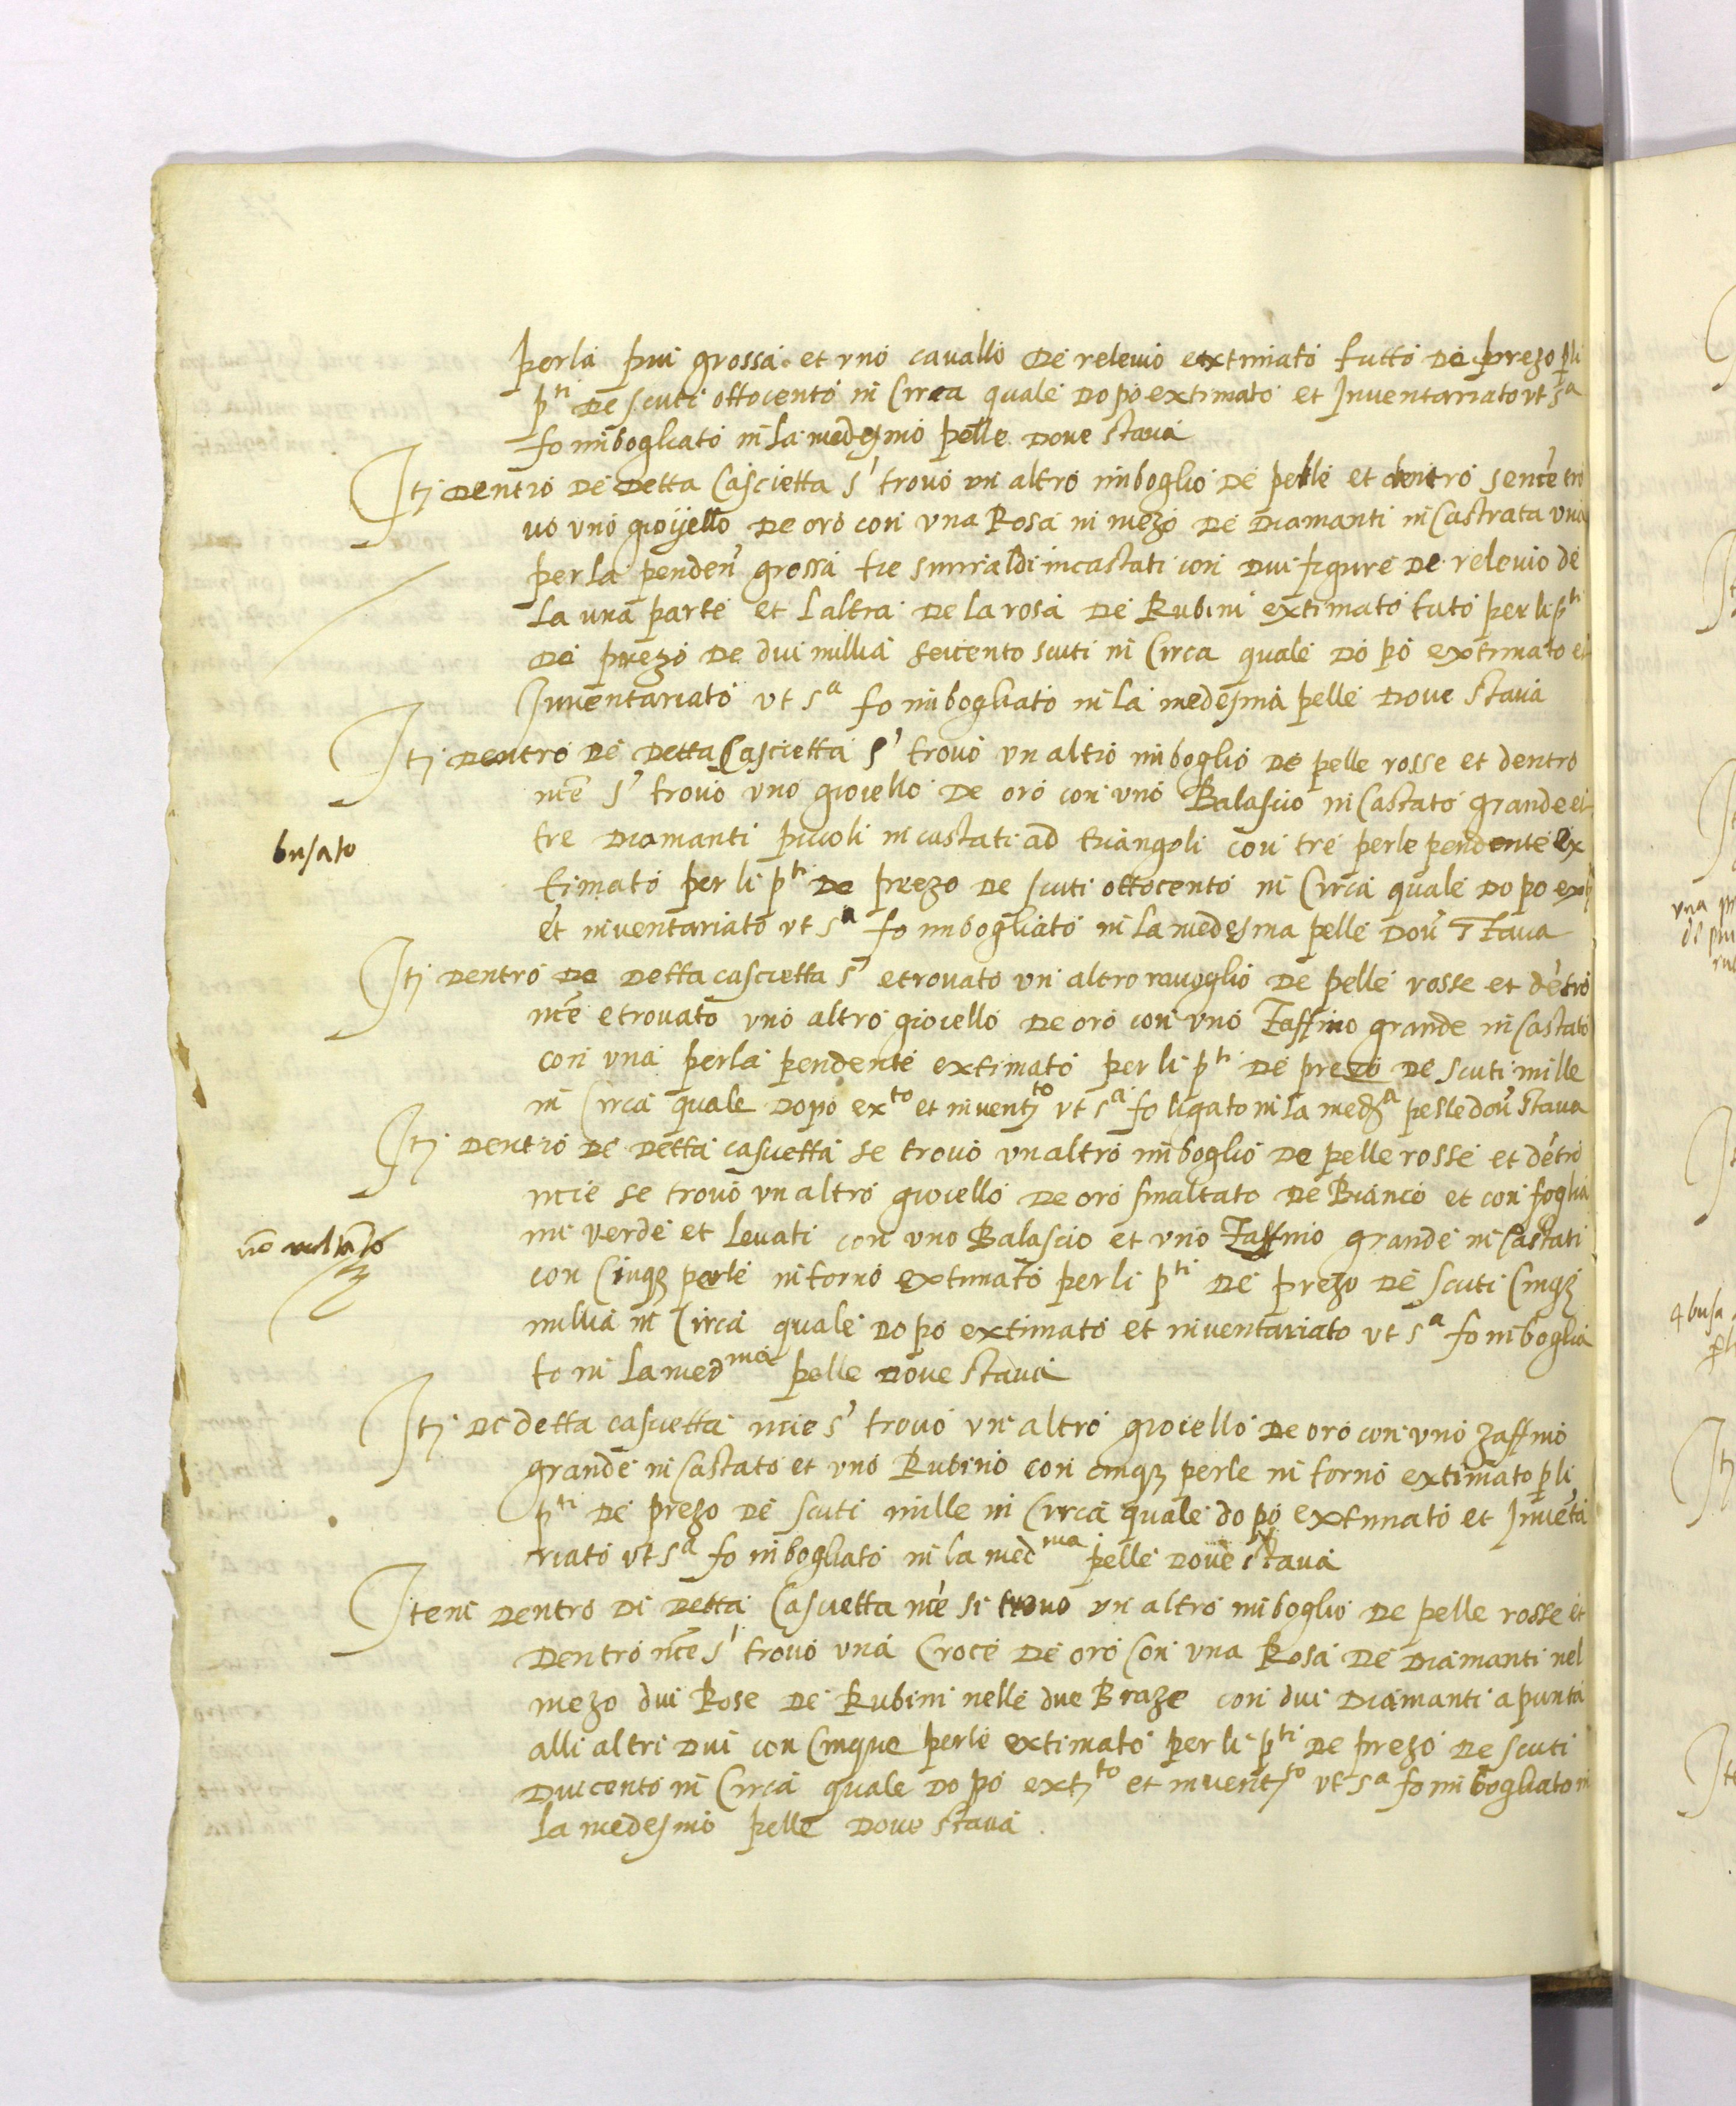 perla piu grossa et uno cavallo de relevio extimato tutto de prezo pli
pti de scuti ottocento in Circa quale dopo extimato et Inventariato ut sa
fo imbogliato in la medesmo pelle dove stava
Itj dentro de detta Cascietta s' trovò un altro imboglio de pelle et dentro sence tro
vò uno gioijello de oro con una Rosa in mezo de Diamanti inCastrata una
perla penden' grossa tre smiraldi incastati con dui figure de relevio de
la una parte et laltra de la rosa de Rubini extimato tuto per li pti
de prezo de dui milliá seicento scuti in Circa quale dopo extimato et
Inventariato ut sa fo imbogliato in la medesma pelle dove stava
Itj dentro de detta Cascietta s' trovò un altro imboglio de pelle rosse et dentro
nce s' trovò uno gioiello de oro con uno Balascio inCastato grande et
busato
tre diamanti piccoli incastati ad triangoli con tre perle pendente ex
timato per li pti de prezo de scuti ottocento in Circa quale dopo ext
et inventariato ut sa fo imbogliato in la medesma pelle dov' stava
Itj dentro de detta cascietta s' etrovato un altro ravoglio de pelle rosse et detro
nce etrovato uno altro gioiello de oro con uno Zaffino grande inCastato
con una perla pendente extimato per li pti de prezo de scuti mille
in Circa quale dopo exto et inventjto ut sa fo ligato in la meda pelle dov' stava
Itj dentro de detta cascietta se trovò un altro imboglio de pelle rosse et detro
ncie se trovò un altro gioiello de oro smaltato de Bianco et con foglia
mi verde et levati con uno Balascio et uno Zaffino grande inCastati
con Cinqz perle intorno extimato per li pti de prezo de scuti Cinqz
milliá in Circa quale dopo extimato et inventariato ut sa fo imboglia
to in la medma pelle dove stava
Itj de detta cascietta ncie s' trovò un altro gioiello de oro con uno zaffino
grande inCastato et uno Rubino con cinqz perle intorno extimato pli
pti de prezo de scuti mille in Circa quale dopo extimato et Inventa
riato ut sa fo imbogliato in la medma pelle dove stava
Item dentro di detta Cascietta nce si trovo un altro imboglio de pelle rosse et
dentro nce s' trovò una Croce de oro Con una Rosa de Diamanti nel
mezo dui Rose de Rubini nelle due Braze con dui Diamanti a punta
alli altri dui con Cinque perle extimato per li pti de prezo de scuti
Duicento in Circa quale dopo extjto et inventjto ut sa fo imbogliato in
la medesmo pelle dove stava